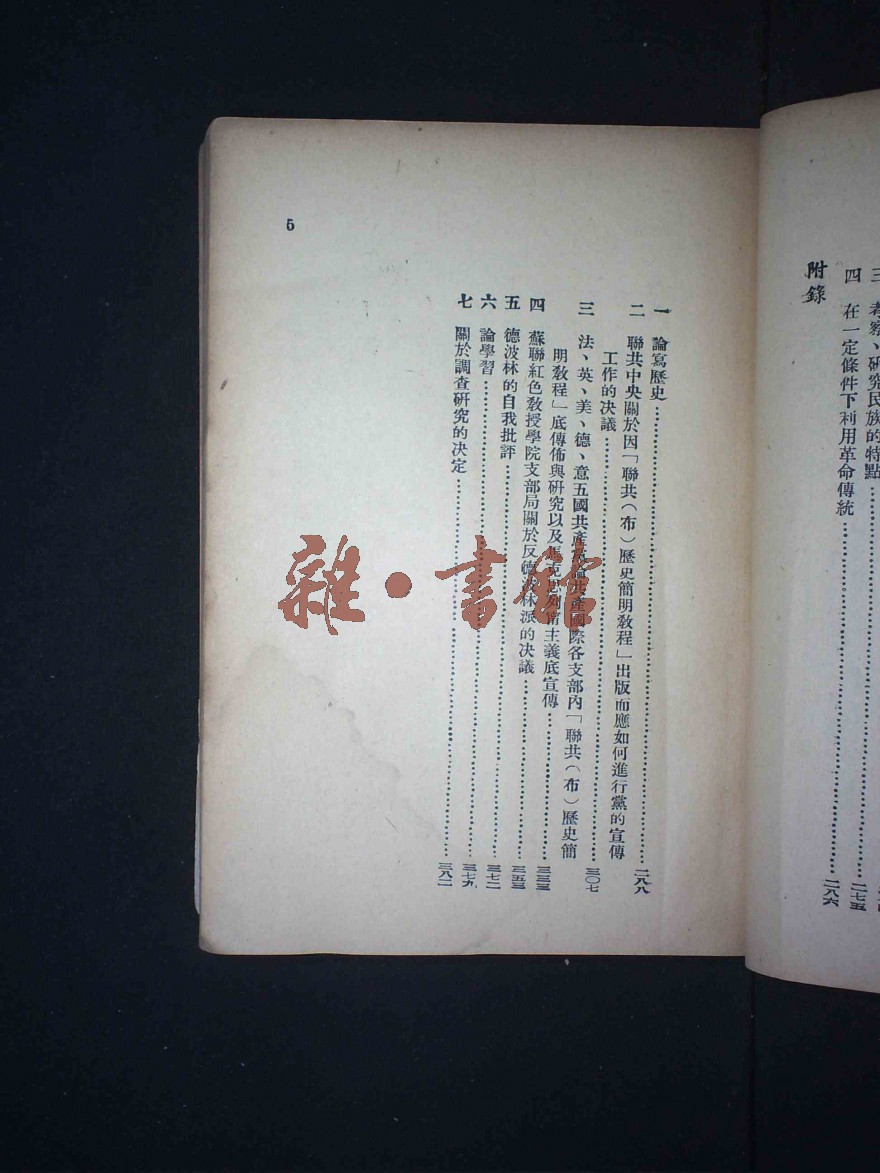 三 考察、研究民族的特點
四 在一定條件下利用革命傳統……二七五
附錄……二八六
一 論寫歷史……二八八
二 聯共中央關於因「聯共(布)歷史簡明教程」出版而應如何進行黨的宣傳
工作的決議……三〇七
三 法、英、美、德、意五國共產黨論共產國際各支部內「聯共(布)歷史簡
明教程」底傳佈與研究以及馬克思列甯主義底宣傳……三三三
四 蘇聯紅色教授學院支部局關於反德波林派的決議……三五三
五 德波林的自我批評……三七二
六 論學習……三七九
七 關於調查研究的決定……三八二
5
雜·書館